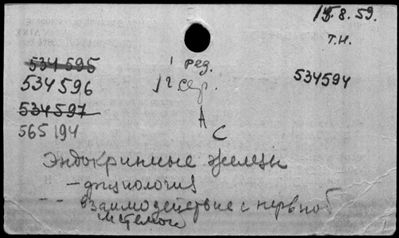 15.8.59.
т.н.
534 595
1 ред.
534 596
534594
534 597
А
С
565 194
Эндокринные железы
– физиология
– – взаимодействие с нервной
системой